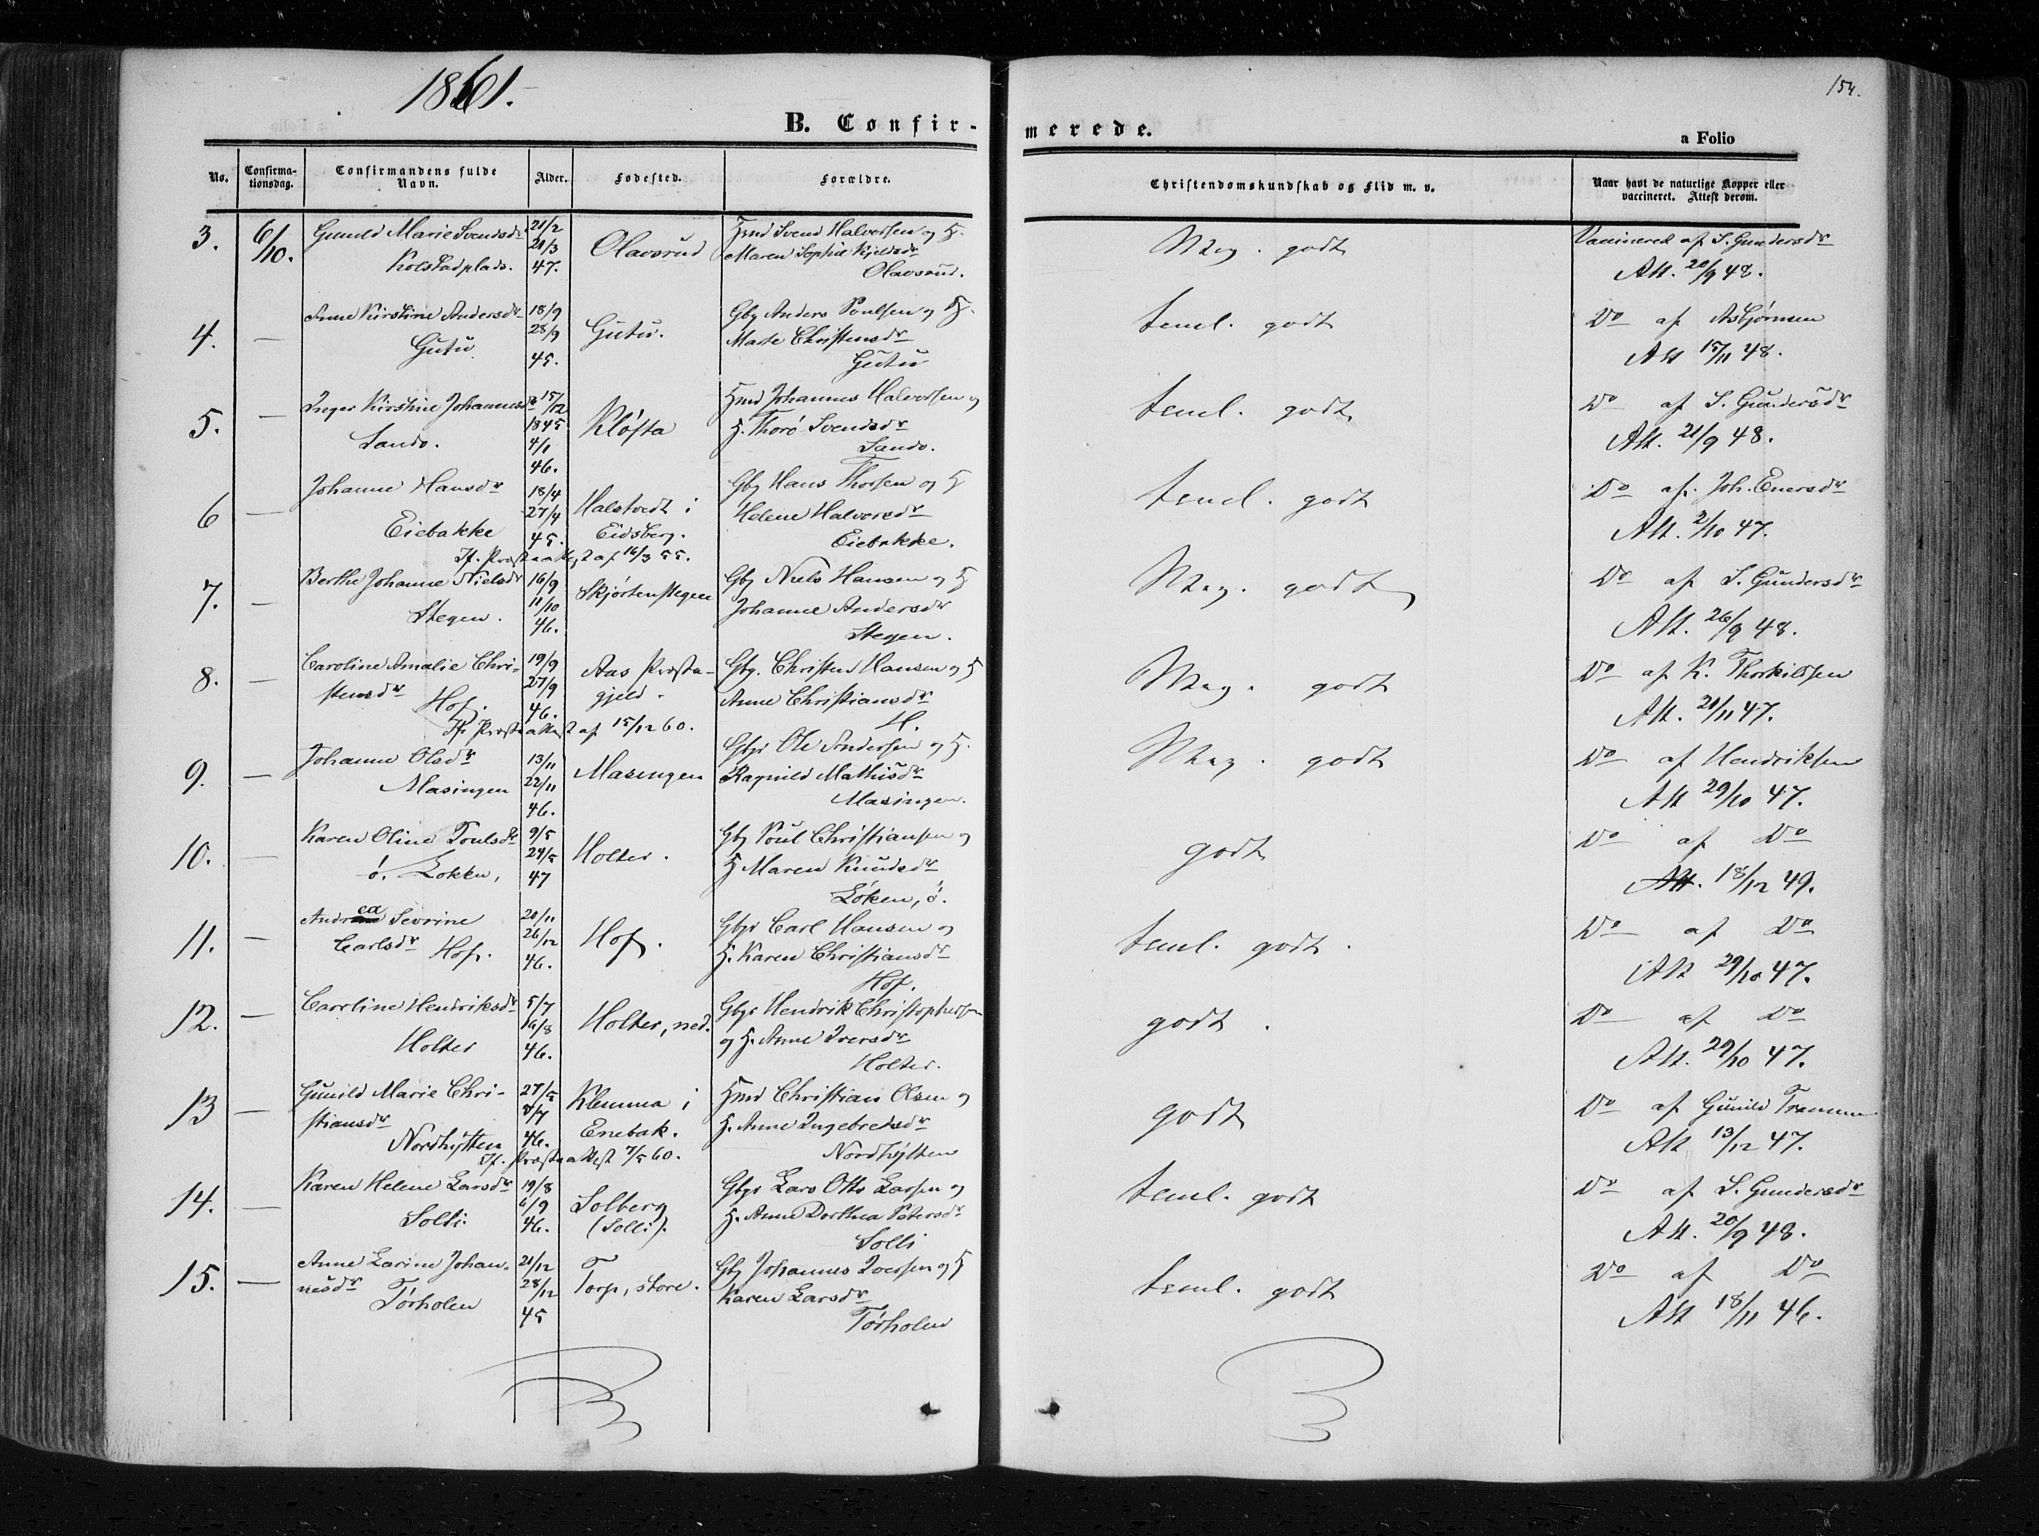 1861.
154.
B. Confir-
merede.
a Folio
No.
Confirma-
tionsdag.
Confirmandens fulde
Navn.
Alder.
Fødested.
Forældre.
Christendomskundskab og Flid m. v.
Naar havt de naturlige Kopper eller
vaccineret. Attest derom.
3.
6/10.
Gunild Marie Svendsdr
Kolstadplads.
21/2
21/3
47.
Olavsrud
Hmd Svend Halvorsen og H.
Maren Sophie Kjeldsdr
Olavsrud.
Meg. godt
Vaccinered af S. Gundersdr
Att. 20/9 48.
4.
—
Anne Kirstine Andersdr
Gutu
18/9
28/9
45.
Gutu.
Gbg Anders Poulsen og H.
Marte Christensdr
Gutu
teml. godt
Do af Asbjørnsen
Att 15/11 48.
5.
—
Inger Kirstine Johannesdr
Sando.
15/12
1845
4/1
46.
Kløfta
Hmd Johannes Halvorsen og
H. Thorø Svendsdr
Sando.
teml. godt
Do af S. Gundersdr
Att. 21/9 48.
6
—
Johanne Hansdr
Eiebakke
18/4
27/4
45.
Halstvedt i
Eidsberg.
Gbg Hans Thorsen og H
Helene Halvorsdr
Eiebakke.
Tf. Præstaattest af 16/3 55.
teml. godt
Do af Joh. Enersdr
Att. 2/10 47.
7.
—
Berthe Johanne Nielsdr
Stegen.
16/9
11/10
46.
Skjørtenstegen
Gbg Niels Hansen og H
Johanne Andersdr
Stegen.
Meg. godt
Do af S. Gundersdr
Att. 26/9 48.
8.
—
Caroline Amalie Chri-
stensdr
Hof.
19/9
27/9
46.
Aas Præsta-
gjeld.
Gbg. Christen Hansen og H
Anne Christiansdr
H.
Tf Præstaattest af 15/12 60.
Meg. godt
Do af K. Thorkildsen
Att. 21/11 47.
9.
—
Johanne Olsdr
Masingen
13/11
22/11
46.
Masingen
Gbgr Ole Andersen og H.
Ragnild Mathisdr
Masingen.
Meg. godt
Do af Hendriksen
Att 29/10 47.
10.
—
Karen Oline Poulsdr
ø. Løkken,
9/5
24/5
47
Holter.
Gbg Poul Christiansen og
H Maren Knudsdr
Løken, ø.
godt
Do af Do
Att. 18/12 49.
11.
—
Andrea Sevrine
Carlsdr Hof.
20/11
26/12
46.
Hof.
Gbgr Carl Hansen og
H. Karen Christiansdr
Hof.
teml. godt.
Do af Do
Att 29/10 47.
12.
—
Caroline Hendriksdr
Holter
5/7
16/8
46.
Holter, ned.
Gbgr Hendrik Christophersen
og H. Anne Iversdr
Holter.
godt.
Do af Do
Att. 29/10 47.
13
—
Gunild Marie Chri-
stiansdr
Nordhytten
27/5
8/7
46.
Klemma i
Enebak.
Hmd Christian Olsen og
H. Anne Ingebretsdr
Nordhytten
Tf. Præstaattest 7/5 60.
godt
Do af Gunild Trammen
Att 13/12 47.
14.
—
Karen Helene Larsdr
Solli.
19/8
6/9
46.
Solberg
(Solli).
Gbgr Lars Otto Larsen og
H. Anne Dorthea Petersdr
Solli
teml. godt
Do af S. Gundersdr
Att. 20/9 48.
15.
—
Anne Larine Johan-
nesdr
Tørholen
21/12
28/12
45
Torp, store.
Gbg Johannes Iversen og H
Karen Larsdr
Tørholen
teml. godt
Do af Do
Att 18/11 46.